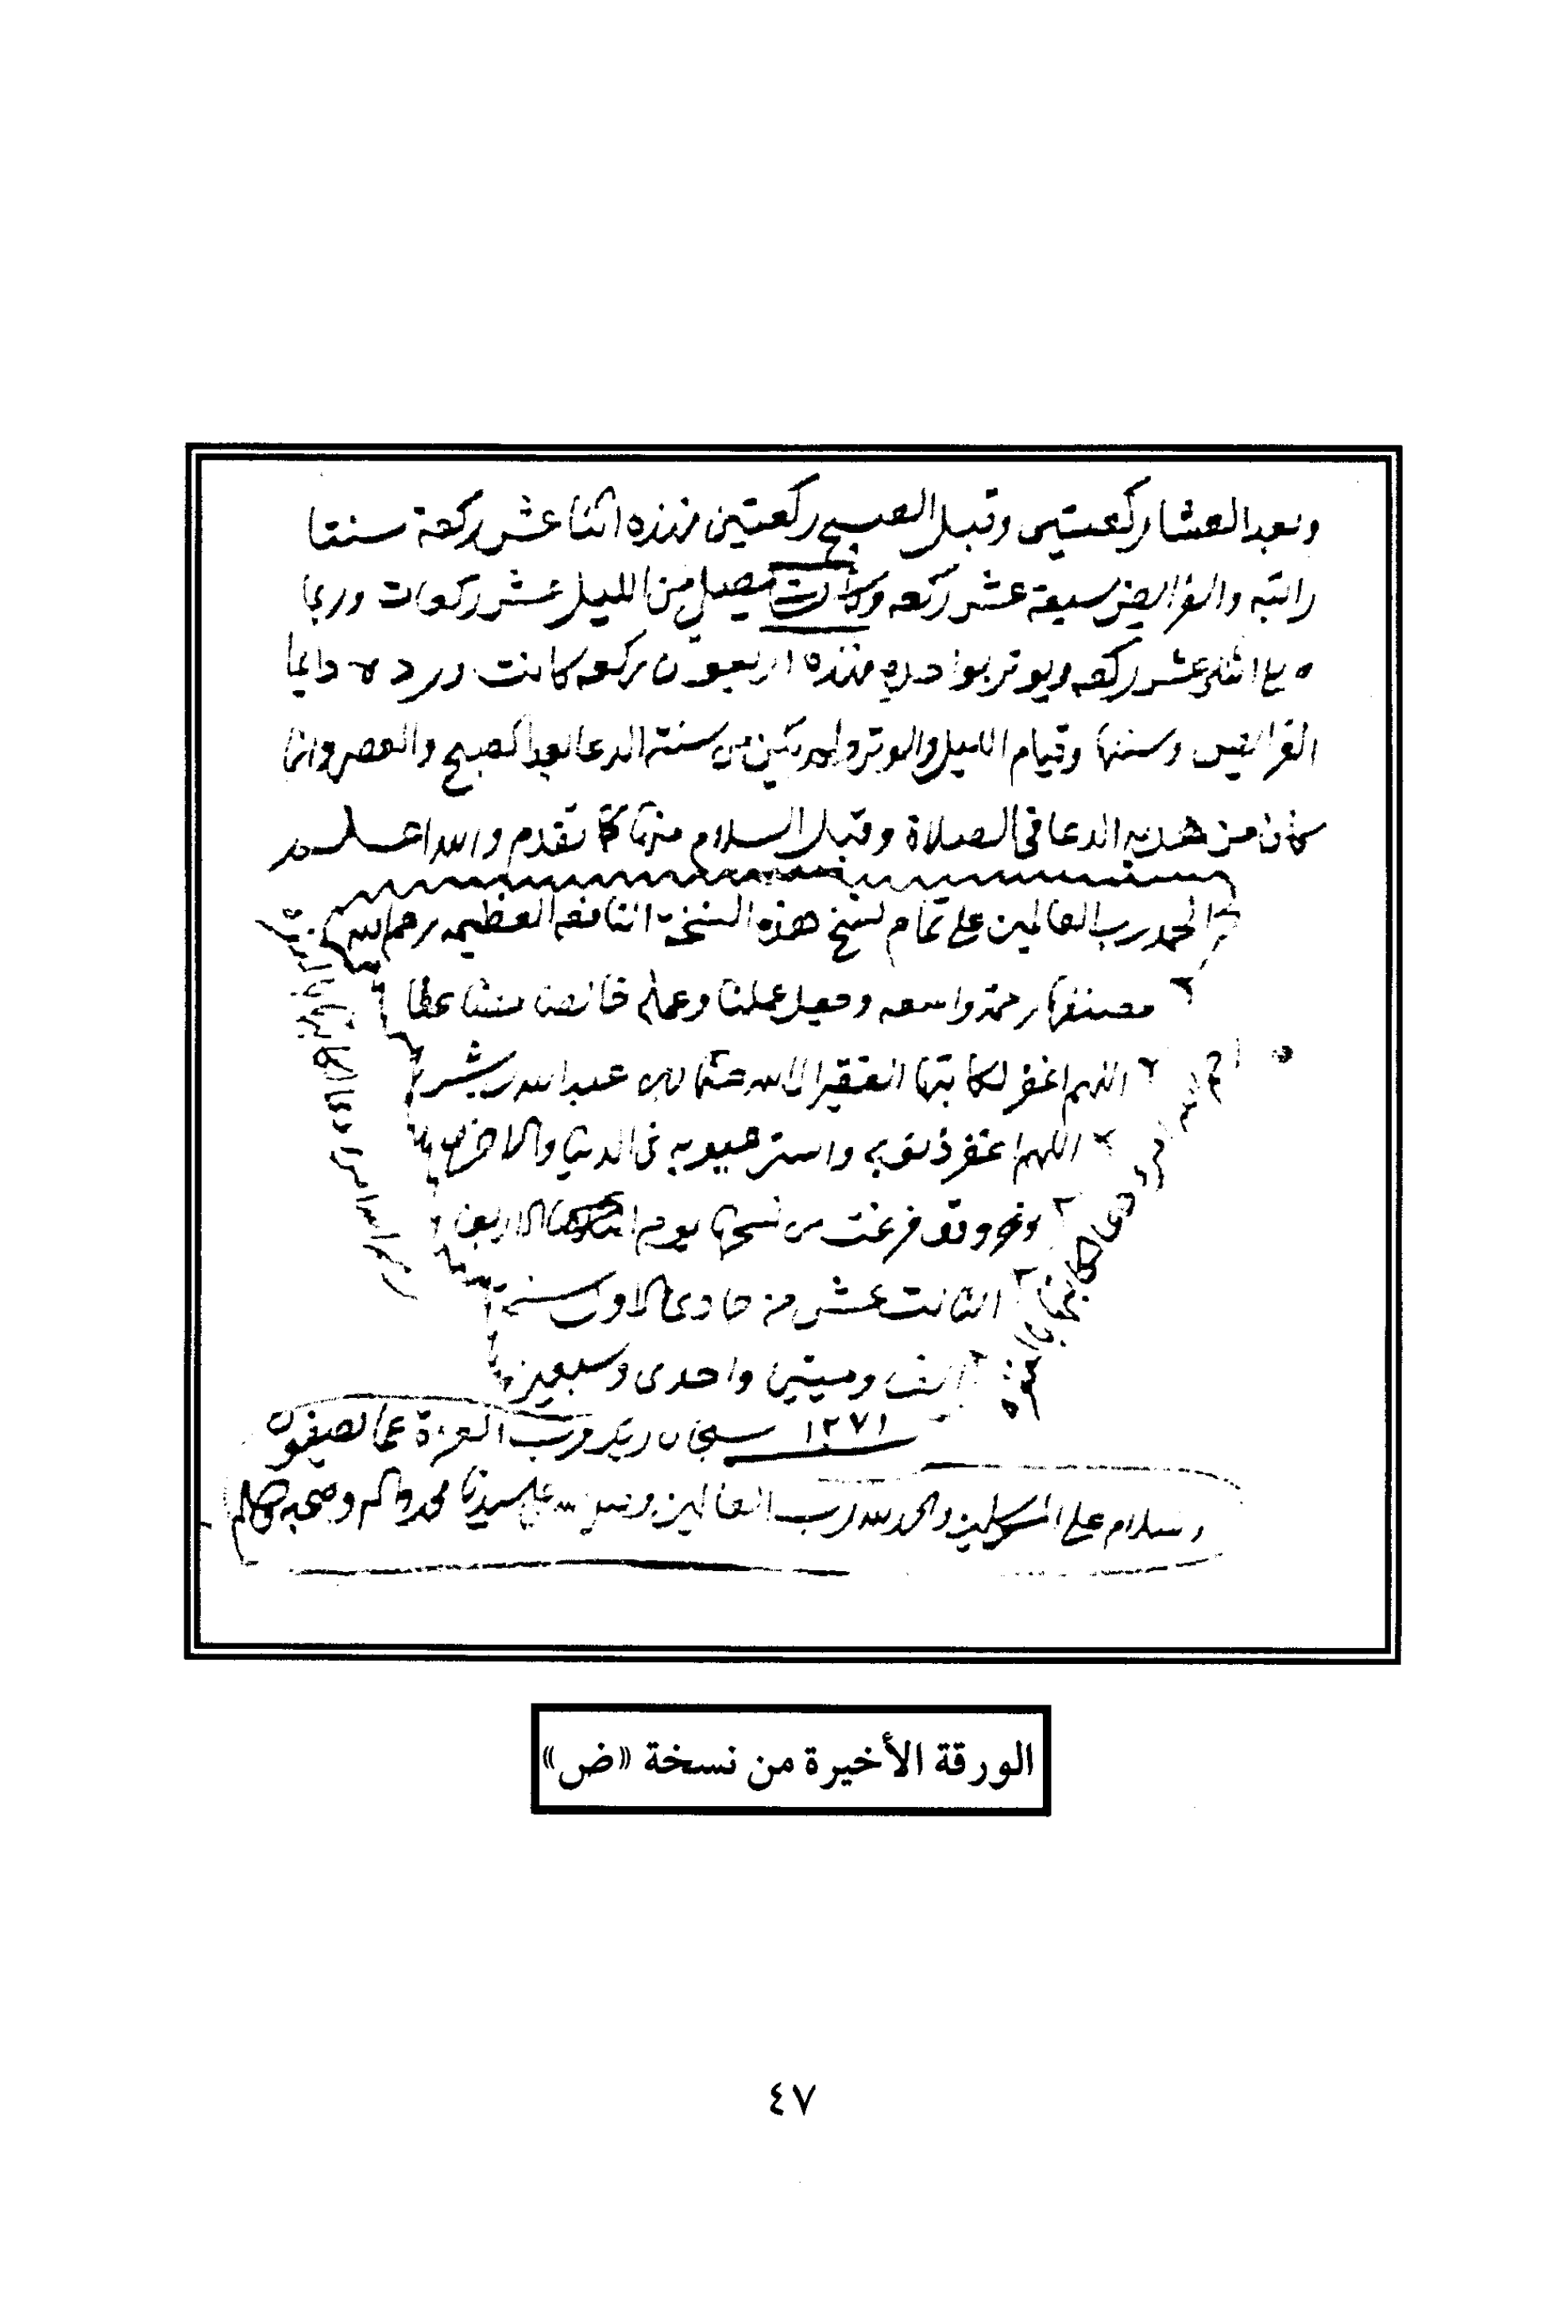 وبعد العشا ركعتين وقبل الصبح ركعتين فهذه اثنا عشر ركعة سنتا
راتبه والفرايض سبعة عشر ركعه وكانت يصلي من الليل عشر ركعات وربما
اثنى عشر ركعه ويوتر بواحده فهذه اربعون ركعه كانت ورده دايما
الفرايض وسننها وقيام الليل والوتر ولم يكن من سنته الدعا بعد الصبح والعصر وانما
كان من هديه الدعا في الصلاة وقبل السلام منها كما تقدم والله اعلم
الحمد رب العالمين على تمام نسخ هذه النسخة النافعه العظيمه رحم الله
مصنفها رحمة واسعه وجعل عملنا وعمله خالصا
اللهم اغفر لكاتبها الفقير الى الله عبد الله
اللهم اغفر ذنوبه واستر عيوبه في الدنيا والاخره
وقد فرغت من نسخها يوم الاربعا
الثالث عشر من جمادى الاول سنة
الف وميتين واحدى وسبعين
١٢٧١ سبحان ربك رب العزة عما يصفون
وسلام على المرسلين والحمد لله رب العالمين وصلى الله على سيدنا محمد واله وصحبه وسلم
الورقة الأخيرة من نسخة «ض»
٤٧